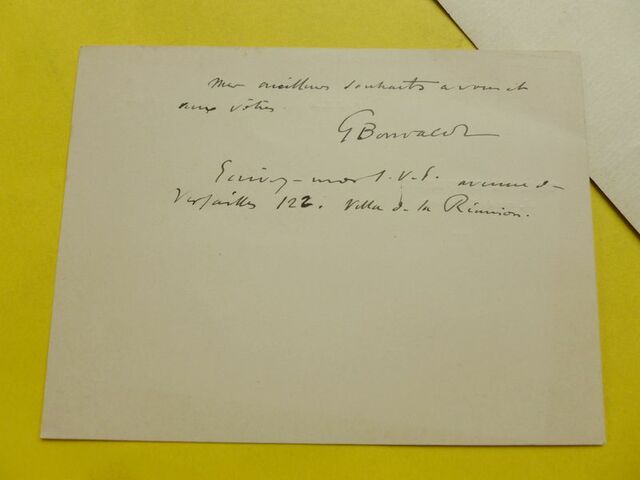 Mes meilleurs souhaits à vous et
aux vôtres.
G Bonvalot
Ecrivez-moi s.v.p. avenue de
Versailles 122. Villa de la Réunion.